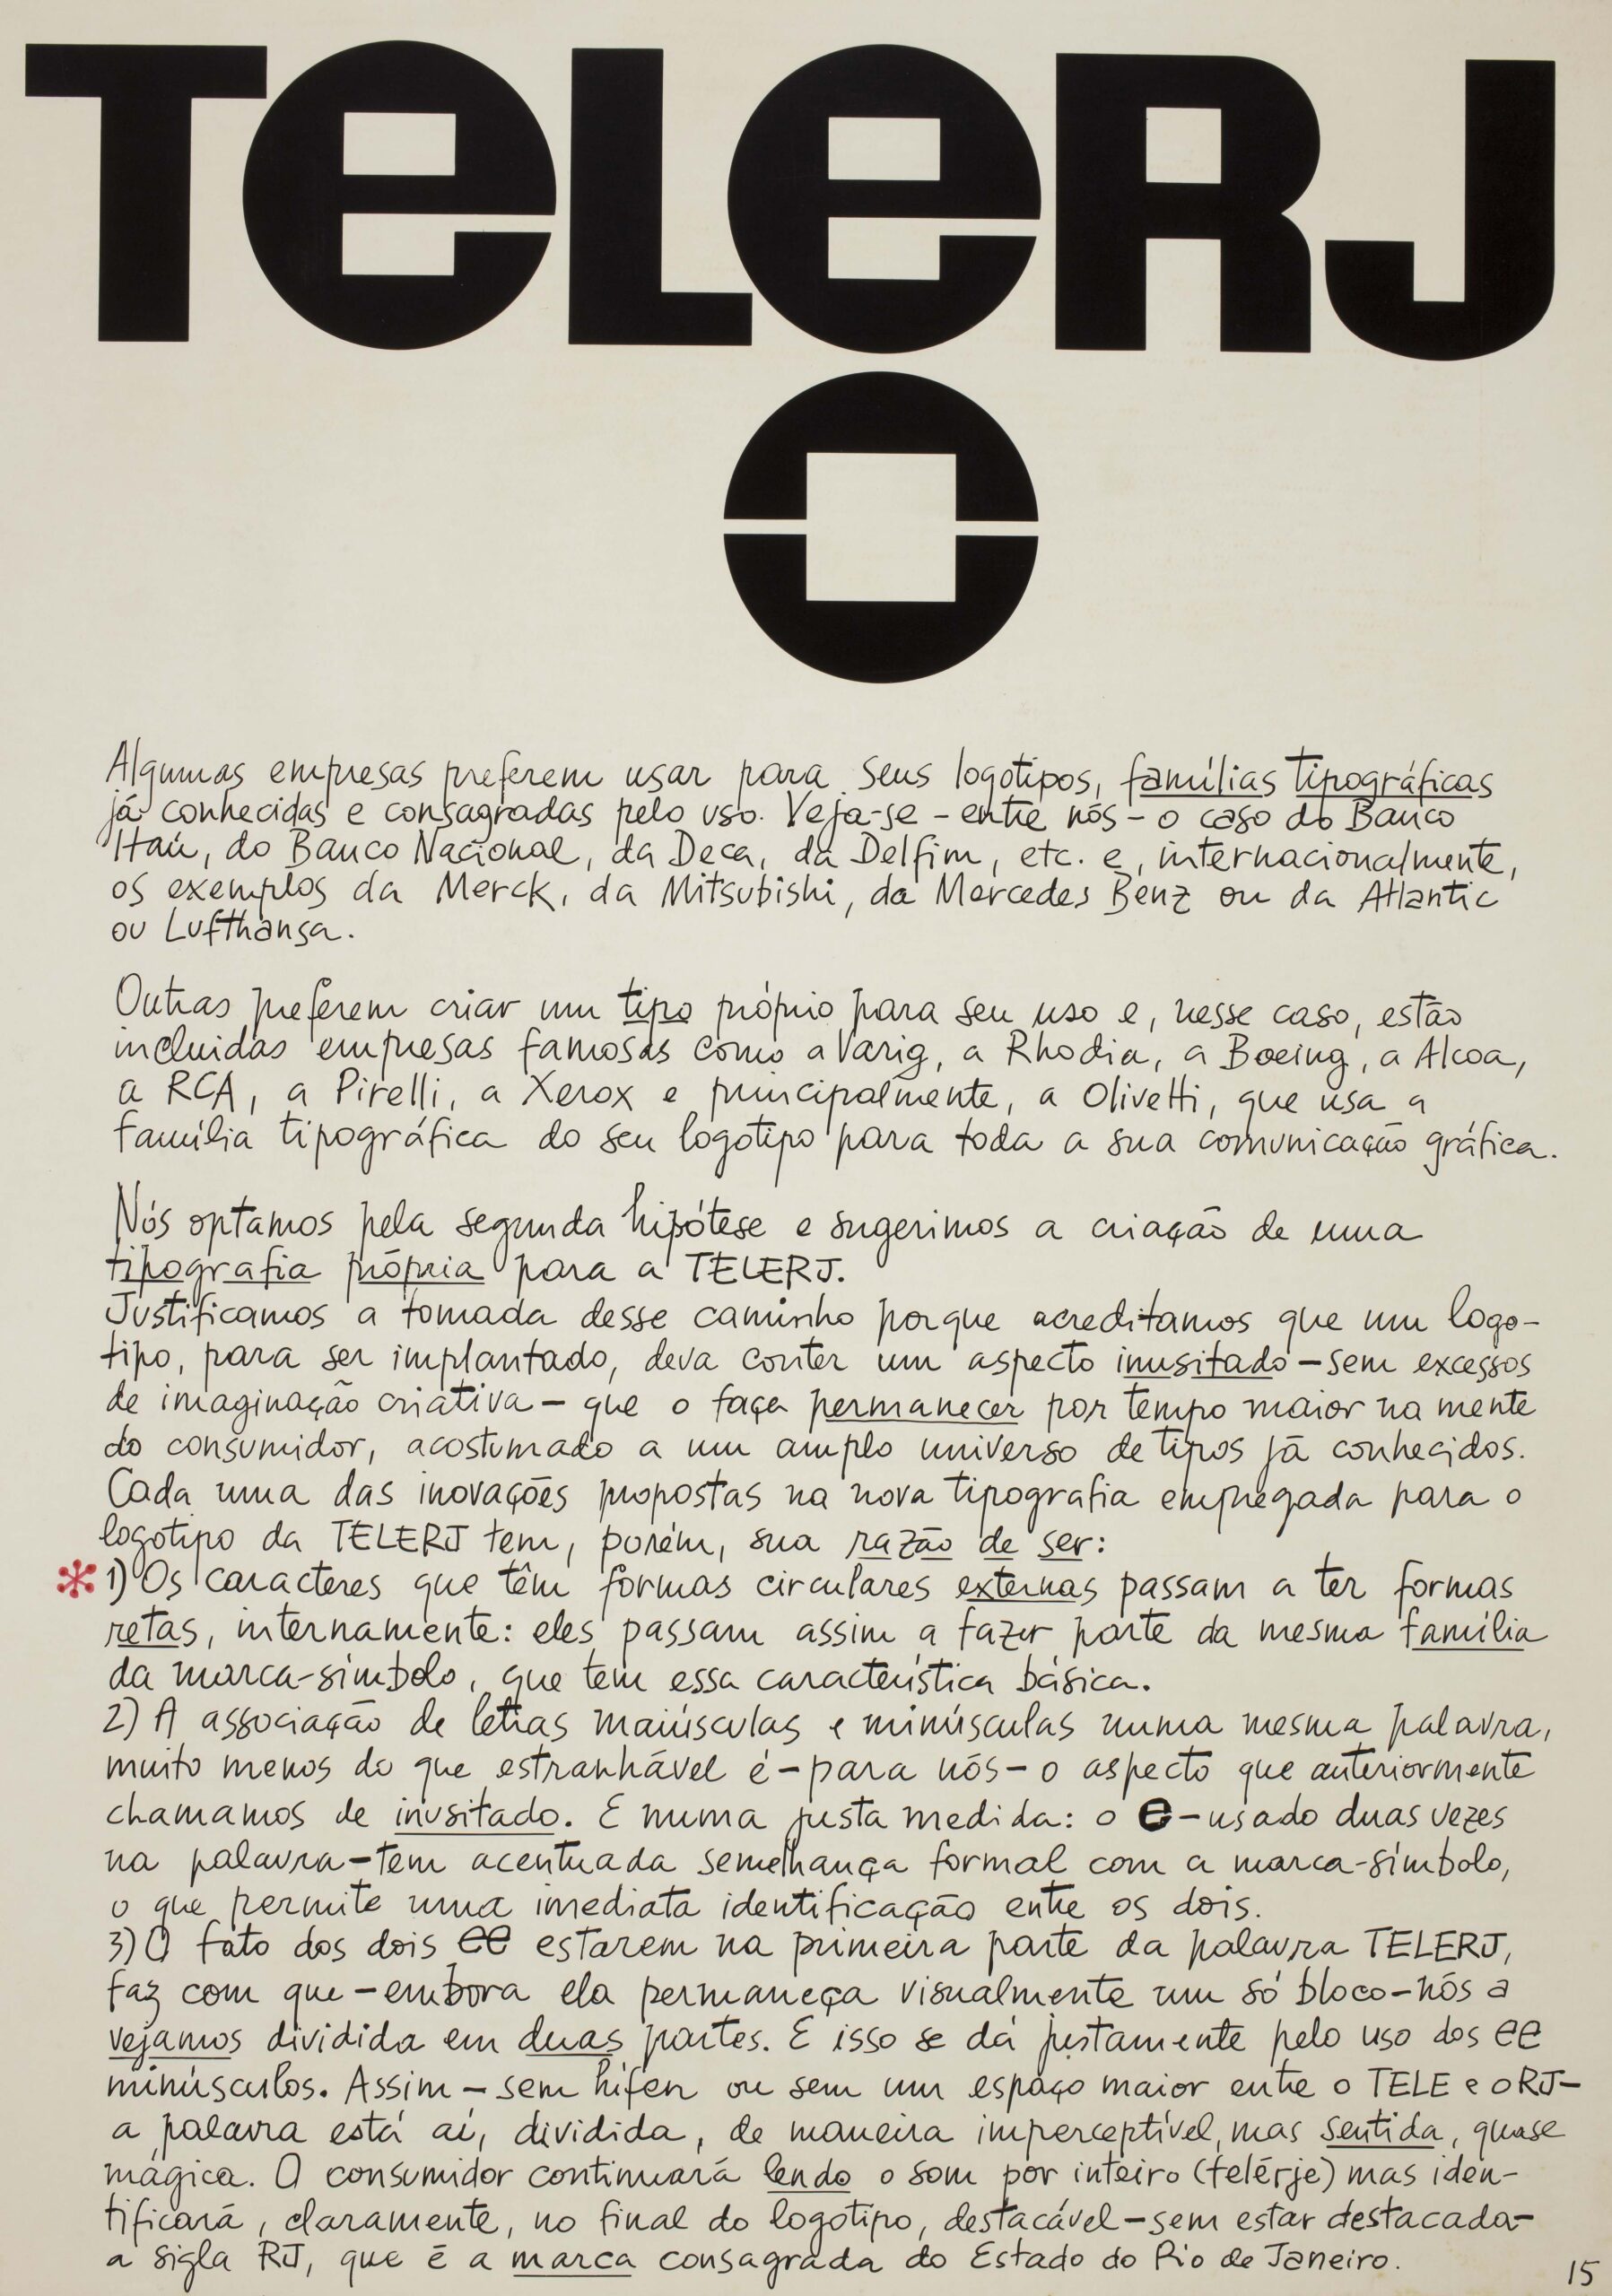 TeLeRJ
Algumas empresas preferem usar para seus logotipos, famílias tipográficas
já conhecidas e consagradas pelo uso. Veja-se - entre nós - o caso do Banco
Itaú, do Banco Nacional, da Deca, da Delfim, etc. e, internacionalmente,
os exemplos da Merck, da Mitsubishi, da Mercedes Benz ou da Atlantic
ou Lufthansa.
Outras preferem criar um tipo próprio para seu uso e, nesse caso, estão
incluidas empresas famosas como a Varig, a Rhodia, a Boeing, a Alcoa,
a RCA, a Pirelli, a Xerox e principalmente, a Olivetti, que usa a
família tipográfica do seu logotipo para toda a sua comunicação gráfica.
Nós optamos pela segunda hipótese e sugerimos a criação de uma
tipografia própria para a TELERJ.
Justificamos a tomada desse caminho porque acreditamos que um logo-
tipo, para ser implantado, deva conter um aspecto inusitado - sem excessos
de imaginação criativa - que o faça permanecer por tempo maior na mente
do consumidor, acostumado a um amplo universo de tipos já conhecidos.
Cada uma das inovações propostas na nova tipografia empregada para o
logotipo da TELERJ tem, porém, sua razão de ser:
* 1) Os caracteres que têm formas circulares externas passam a ter formas
retas, internamente: eles passam assim a fazer parte da mesma família
da marca-símbolo, que tem essa característica básica.
2) A associação de letras maiúsculas e minúsculas numa mesma palavra,
muito menos do que estranhável é - para nós - o aspecto que anteriormente
chamamos de inusitado. E numa justa medida: o e - usado duas vezes
na palavra - tem acentuada semelhança formal com a marca-símbolo,
o que permite uma imediata identificação entre os dois.
3) O fato dos dois ee estarem na primeira parte da palavra TELERJ,
faz com que - embora ela permaneça visualmente um só bloco - nós a
vejamos dividida em duas partes. E isso se dá justamente pelo uso dos ee
minúsculos. Assim - sem hífen ou sem um espaço maior entre o TELE e o RJ -
a palavra está aí, dividida, de maneira imperceptível, mas sentida, quase
mágica. O consumidor continuará lendo o som por inteiro (telérje) mas iden-
tificará, claramente, no final do logotipo, destacável - sem estar destacada -
a sigla RJ, que é a marca consagrada do Estado do Rio de Janeiro.
15